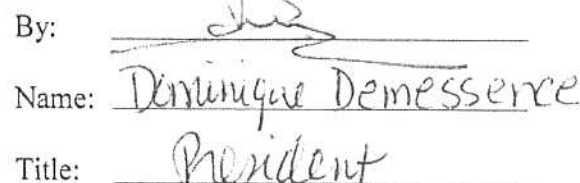 By:
Name: Dominique Demessence
Title: President